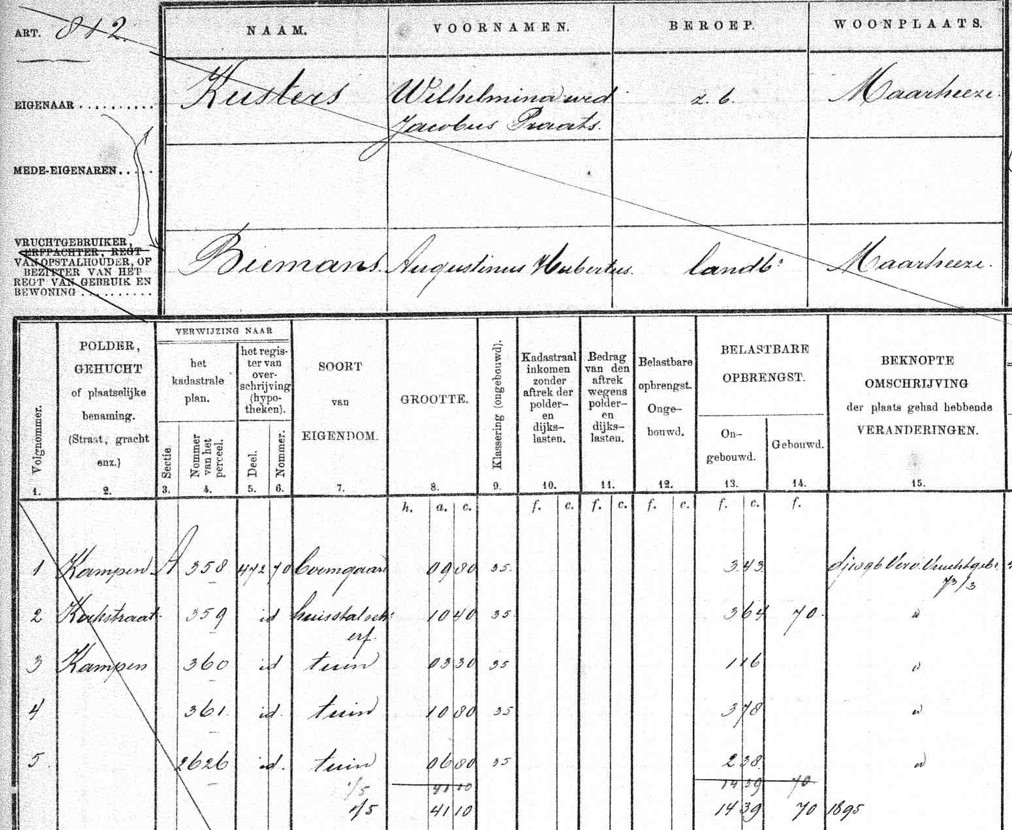 ART. 812.
NAAM. VOORNAMEN. BEROEP. WOONPLAATS.
EIGENAAR .......... Kusters Wilhelmina wed z. b. Maarheeze.
Jacobus Praats.
MEDE-EIGENAREN....
VRUCHTGEBRUIKER,
ERFPACHTER, REGT
VAN OPSTALHOUDER, OF
BEZITTER VAN HET
REGT VAN GEBRUIK EN
BEWONING ..........
Biemans. Augustinus Hubertus. landbr Maarheeze.
Volgnommer.
1.
POLDER,
GEHUCHT
of plaatselijke
benaming.
(Straat, gracht
enz.)
2.
VERWIJZING NAAR
het
kadastrale
plan.
Sectie.
3.
Nommer
van het
perceel.
4.
het regis-
ter van
over-
schrijving
(hypo-
theken).
Deel.
5.
Nommer.
6.
SOORT
van
EIGENDOM.
7.
GROOTTE.
8.
Klassering (ongebouwd).
9.
Kadastraal
inkomen
zonder
aftrek der
polder-
en
dijks-
lasten.
10.
Bedrag
van den
aftrek
wegens
polder-
en
dijks-
lasten.
11.
Belastbare
opbrengst.
Onge-
bouwd.
12.
BELASTBARE
OPBRENGST.
On-
gebouwd.
13.
Gebouwd.
14.
BEKNOPTE
OMSCHRIJVING
der plaats gehad hebbende
VERANDERINGEN.
15.
h. a. c. f. c. f. c. f. c. f. c. f.
1 Kampen A 358 472 70 boomgaard 09 80 35 3.43
2 Kerkstraat 359 id huis stal sch: 10 40 35 3 64 70.
erf.
3 Kampen 360 id tuin 03 30 35 1 16
4 361. id. tuin 10 80 35 3 78
5. 2626 id. tuin 06 80 35 2 38.
1/5 41 10 14 39 70
4/5 41 10 14 39 70 1895